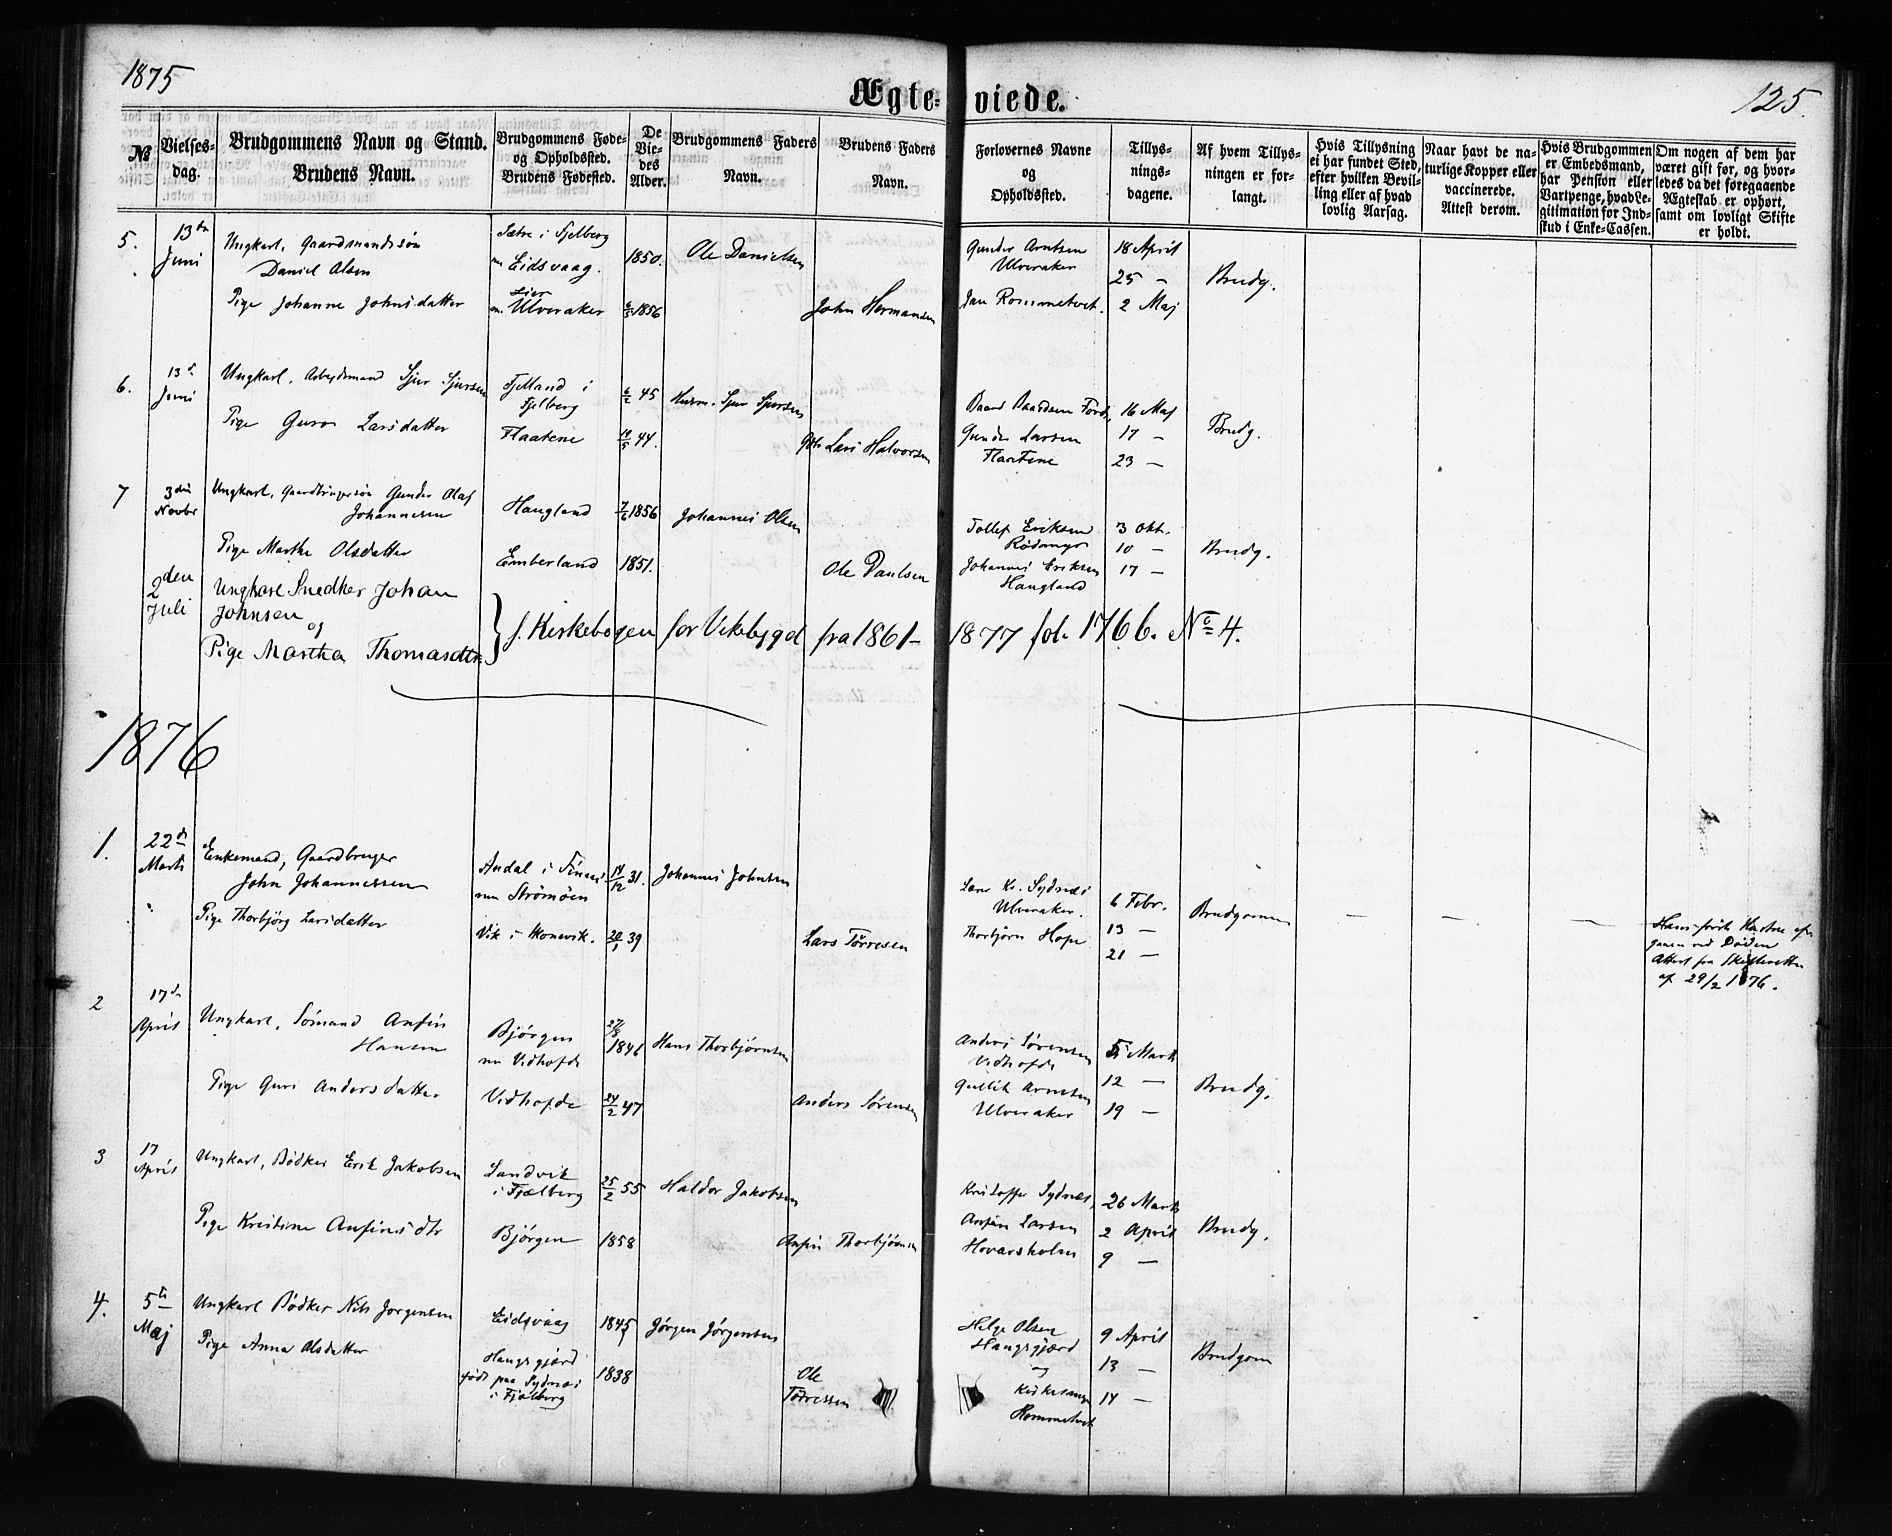 1875
125.
Ægte- viede.
№
Vielses-
dag.
Brudgommens Navn og Stand.
Brudens Navn.
Brudgommens Føde-
og Opholdssted.
Brudens Fødested.
De
Vie-
des
Alder.
Brudgommens Faders
Navn.
Brudens Faders
Navn.
Forlovernes Navne
og
Opholdssted.
Tillys-
nings-
dagene.
Af hvem Tillys-
ningen er for-
langt.
Hvis Tillysning
ei har fundet Sted,
efter hvilken Bevil-
ling eller af hvad
lovlig Aarsag.
Naar havt de na-
turlige Kopper eller
vaccinerede.
Attest derom.
Hvis Brudgommen
er Embedsmand,
har Pension eller
Vartpenge, hvad Le-
gitimation for Ind-
skud i Enke-Cassen.
Om nogen af dem har
været gift før, og hvor-
ledes da det foregaaende
Ægteskab er ophørt,
samt om lovligt Skifte
er holdt.
5. 13de Juni
Ungkarl, Gaardmandssøn
Daniel Olsen
Sætre i Fjelberg
nu Eidsvaag.
1850.
Ole Danielsen
Gunder Arntsen
Ulveraker
18 April
25 —
2 Maj
Brudg.
Pige Johanne Johnsdatter
Ulveraker
1856
John Hermansen
6. 13d Juni
Ungkarl, Arbejdsmand Sjur Sjursen
Fjelland i
Fjelberg
6/2 45
Husm. Sjur Sjursen
Baard Baardsen
16 Maj
17 —
23 —
Brudg.
Pige Guro Larsdatter
Flaatene
44.
Lars Halvorsen
Gunder Larsen
Flaatene
7 3die Novbr
Ungkarl, Gaardbrugersøn Gunder Olaf
Johannesen
Haugland
7/6 1856
Johannes Olsen
Tollef Eriksen
Rødmyr
3 Okt.
10 —
17 —
Brudg.
Pige Martha Olsdatter
Emberland
1851.
Ole Paulsen
Johannes Eriksen
Haugland
2den
Juli
Ungkarl Snedker Johan
Johnsen
og
Pige Martha Thomasdtr.
f. Kirkebogen for Vikebygd fra 1861–1877 fol. 176 b. No 4.
1876
1. 22d
Marts
Enkemand, Gaardbruger
John Johannessen
Andal i Finnes
nu Strömöen
14/12 31.
Johannes Johnsen
Lars Kr. Sydnæs
Ulveraker.
6 Febr.
13 —
21 —
Brudgommen
— — —
Pige Thorbjörg Larsdatter
Vik i Skonevik.
20/1 39
Lars Tørresen
Thorbjørn Hope
Hans første Kone
ved Døden
Attest fra Skifteretten
af 29/2 1876.
2 17d
April
Ungkarl, Sømand Anfin
Hansen
Bjørgen
nu Vidhofde
27/8
1846
Hans Thorbjørnsen
Anders Sørensen
Vidhofde
5 Marts
12 —
19 —
Brudg.
Pige Guri Andersdatter
Vidhofde
24/2 47
Anders Sørensen
Gullik Arnesen
Ulveraker
3 17
April
Ungkarl, Bødker Erik Jakobsen
Sandvik
i Fjælberg
25/2 55
Haldor Jakobsen
Kristoffer Sydnæs,
26 Marts
2 April
9 —
Brudg.
Pige Kristine Anfinsdtr
Bjørgen
1858
Anfin Thorbjørnsen
Anfin Larsen
Hovarsholm
4. 5te
Maj
Ungkarl Bødker Nils Jorgensen
Eidsvaag
1845
Jørgen Jørgensen
Helge Olsen
Haugsgjærd
og
9 April
13 —
14 —
Brudgom
Pige Anna Olsdatter
Haugsgjærd
født paa Sydnæs
i Fjælberg
1838
Ole
Tørressen